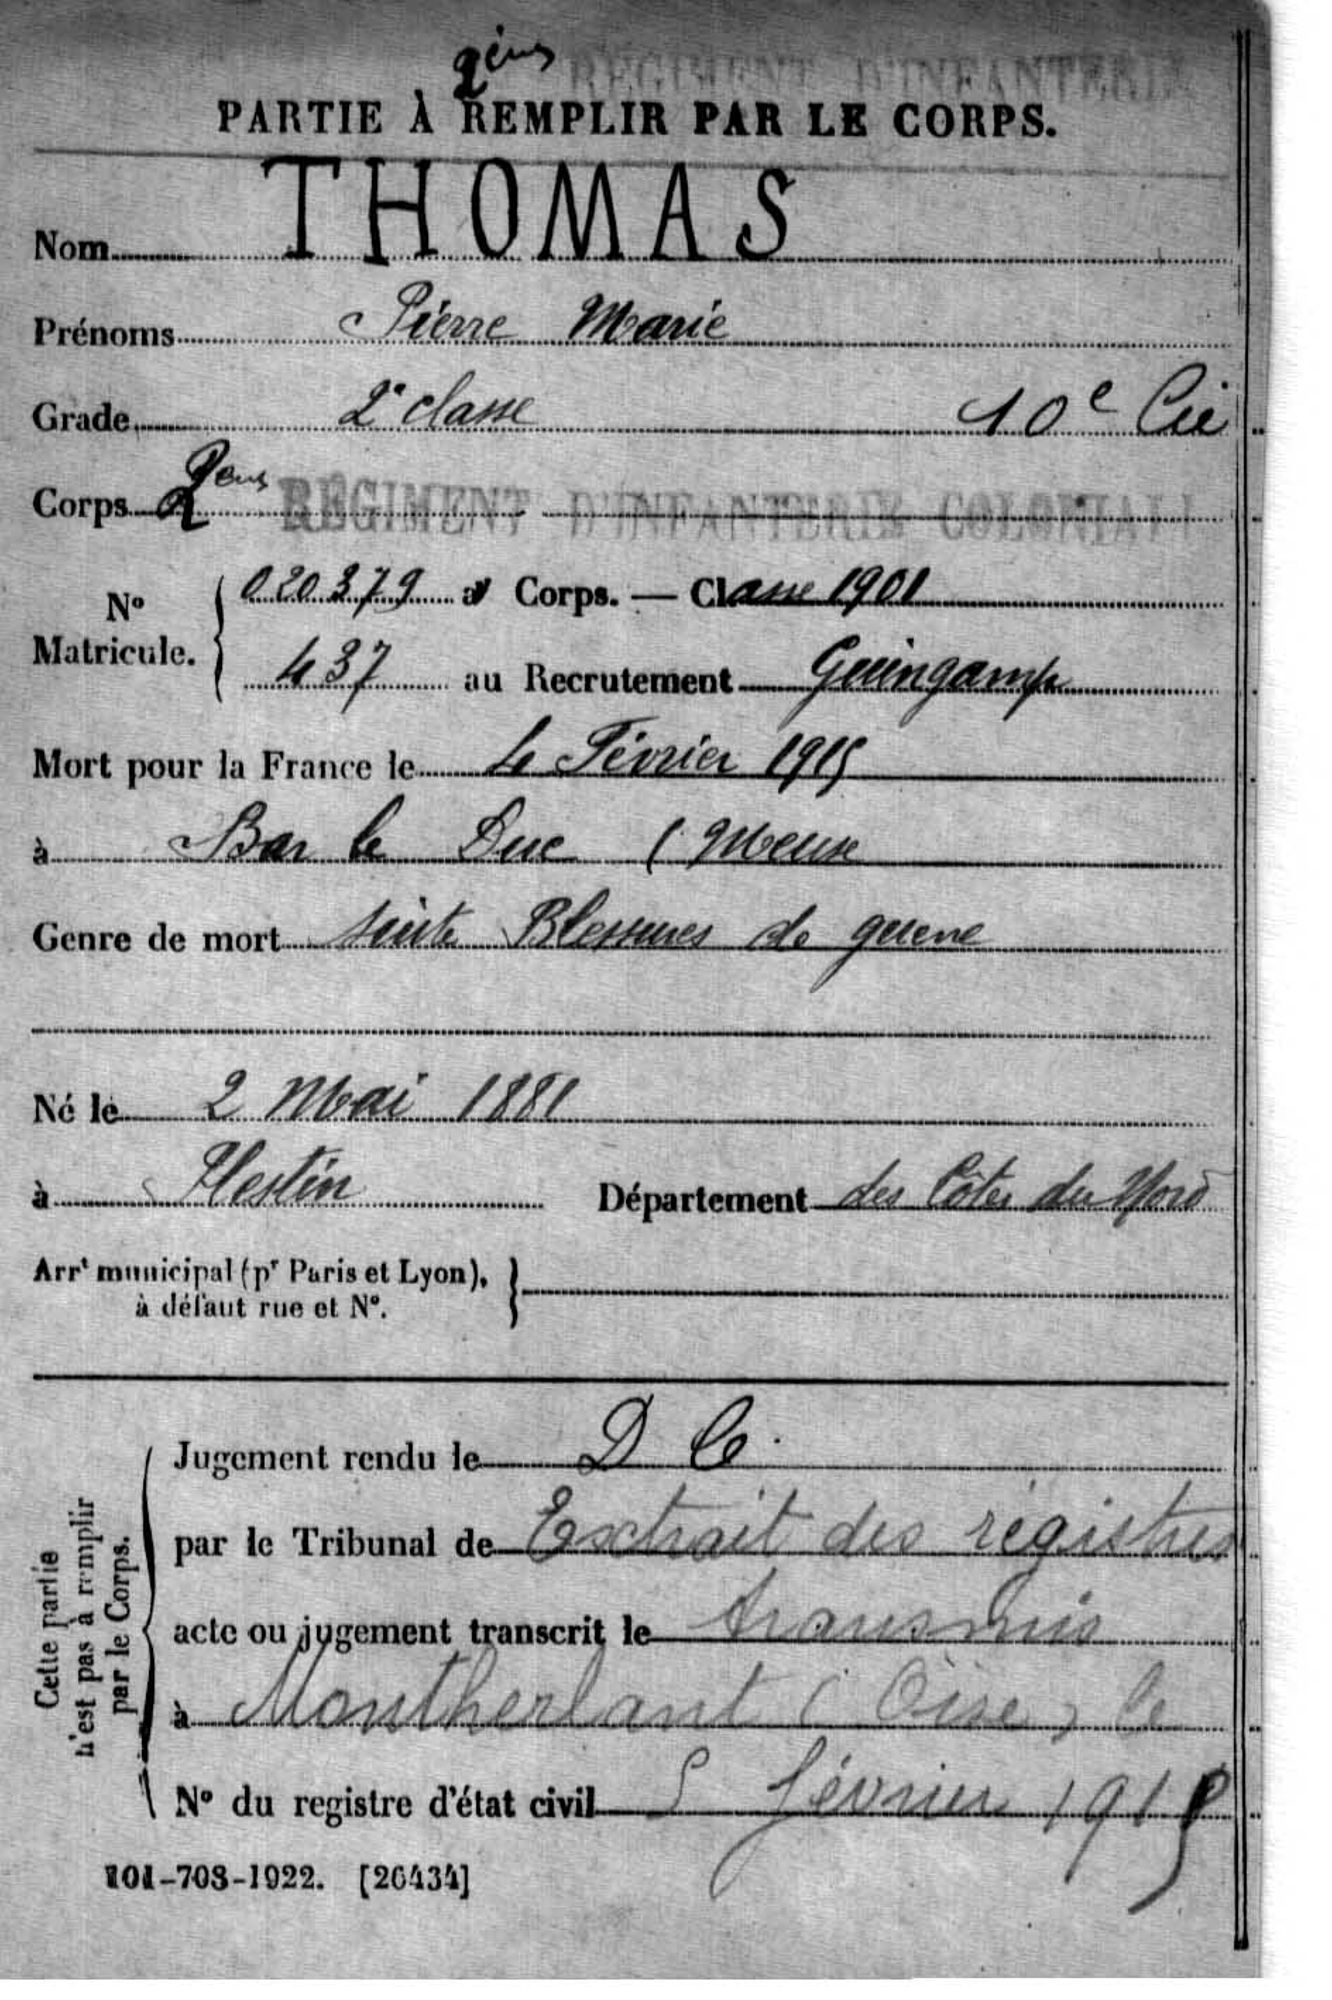 2ème RÉGIMENT D'INFANTERIE
PARTIE À REMPLIR PAR LE CORPS.
Nom THOMAS
Prénoms Pierre Marie
Grade 2e classe 10e Cie
Corps 2 RÉGIMENT D'INFANTERIE COLONIAL
No Matricule. { 020379 au Corps. — Classe 1901
437 au Recrutement Guingamp
Mort pour la France le 4 Février 1915
à Bar le Duc (Meuse
Genre de mort suite Blessures de guerre
Né le 2 Mai 1881
à Plestin Département des Côtes du Nord
Arrt municipal (pr Paris et Lyon),
à défaut rue et No.
Cette partie
n'est pas à remplir
par le Corps.
Jugement rendu le D C.
par le Tribunal de Extrait des registres
acte ou jugement transcrit le transmis
à Montherlant (Oise) le
No du registre d'état civil 5 février 1915
101-708-1922. [26434]